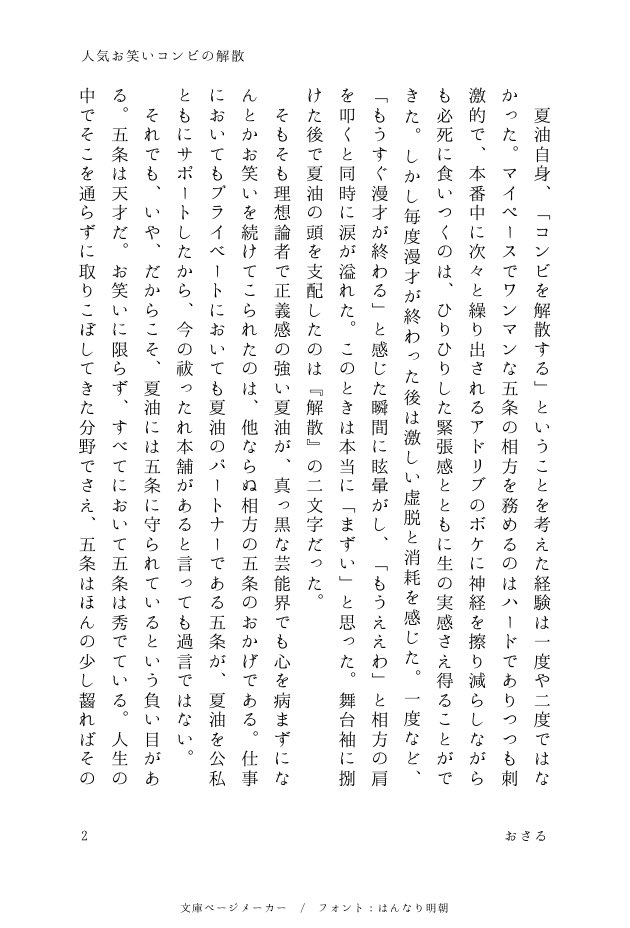 人気お笑いコンビの解散
夏油自身、「コンビを解散する」ということを考えた経験は一度や二度ではな
かった。マイペースでワンマンな五条の相方を務めるのはハードでありつつも刺
激的で、本番中に次々と繰り出されるアドリブのボケに神経を擦り減らしながら
も必死に食いつくのは、ひりひりした緊張感とともに生の実感さえ得ることがで
きた。しかし毎度漫才が終わった後は激しい虚脱と消耗を感じた。一度など、
「もうすぐ漫才が終わる」と感じた瞬間に眩暈がし、「もうええわ」と相方の肩
を叩くと同時に涙が溢れた。このときは本当に「まずい」と思った。舞台袖に捌
けた後で夏油の頭を支配したのは『解散』の二文字だった。
そもそも理想論者で正義感の強い夏油が、真っ黒な芸能界でも心を病まずにな
んとかお笑いを続けてこられたのは、他ならぬ相方の五条のおかげである。仕事
においてもプライベートにおいても夏油のパートナーである五条が、夏油を公私
ともにサポートしたから、今の祓ったれ本舗があると言っても過言ではない。
それでも、いや、だからこそ、夏油には五条に守られているという負い目があ
る。五条は天才だ。お笑いに限らず、すべてにおいて五条は秀でている。人生の
中でそこを通らずに取りこぼしてきた分野でさえ、五条はほんの少し齧ればその
2
おさる
文庫ページメーカー / フォント：はんなり明朝